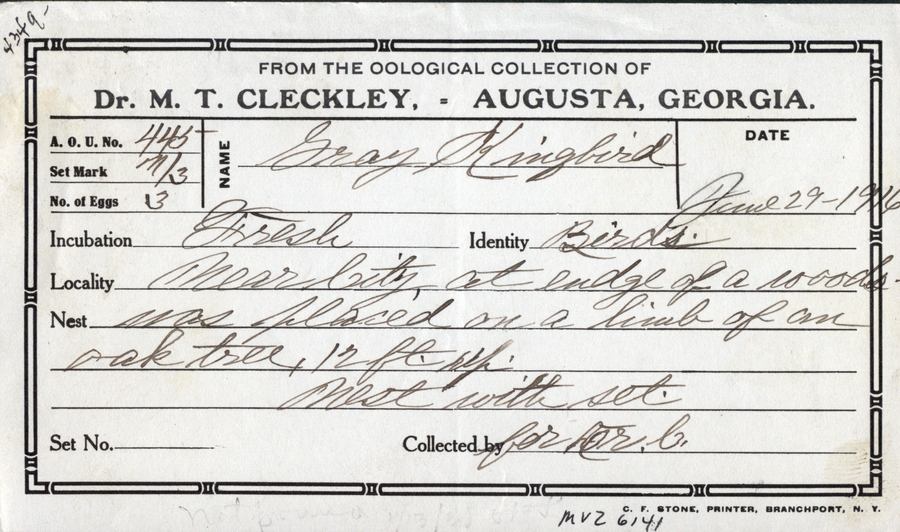 4349-
FROM THE OOLOGICAL COLLECTION OF
Dr. M. T. CLECKLEY, = AUGUSTA, GEORGIA.
A. O. U. No. 445
Set Mark n/3
No. of Eggs 3
NAME Gray Kingbird
DATE
June 29-1916
Incubation Fresh Identity Birds.
Locality Near City, at endge of a woods-
Nest was placed on a limb of an
oak tree, 12 ft. up.
Nest with set.
Set No. Collected by for Dr. C.
C. F. STONE, PRINTER, BRANCHPORT, N. Y.
MVZ 6141